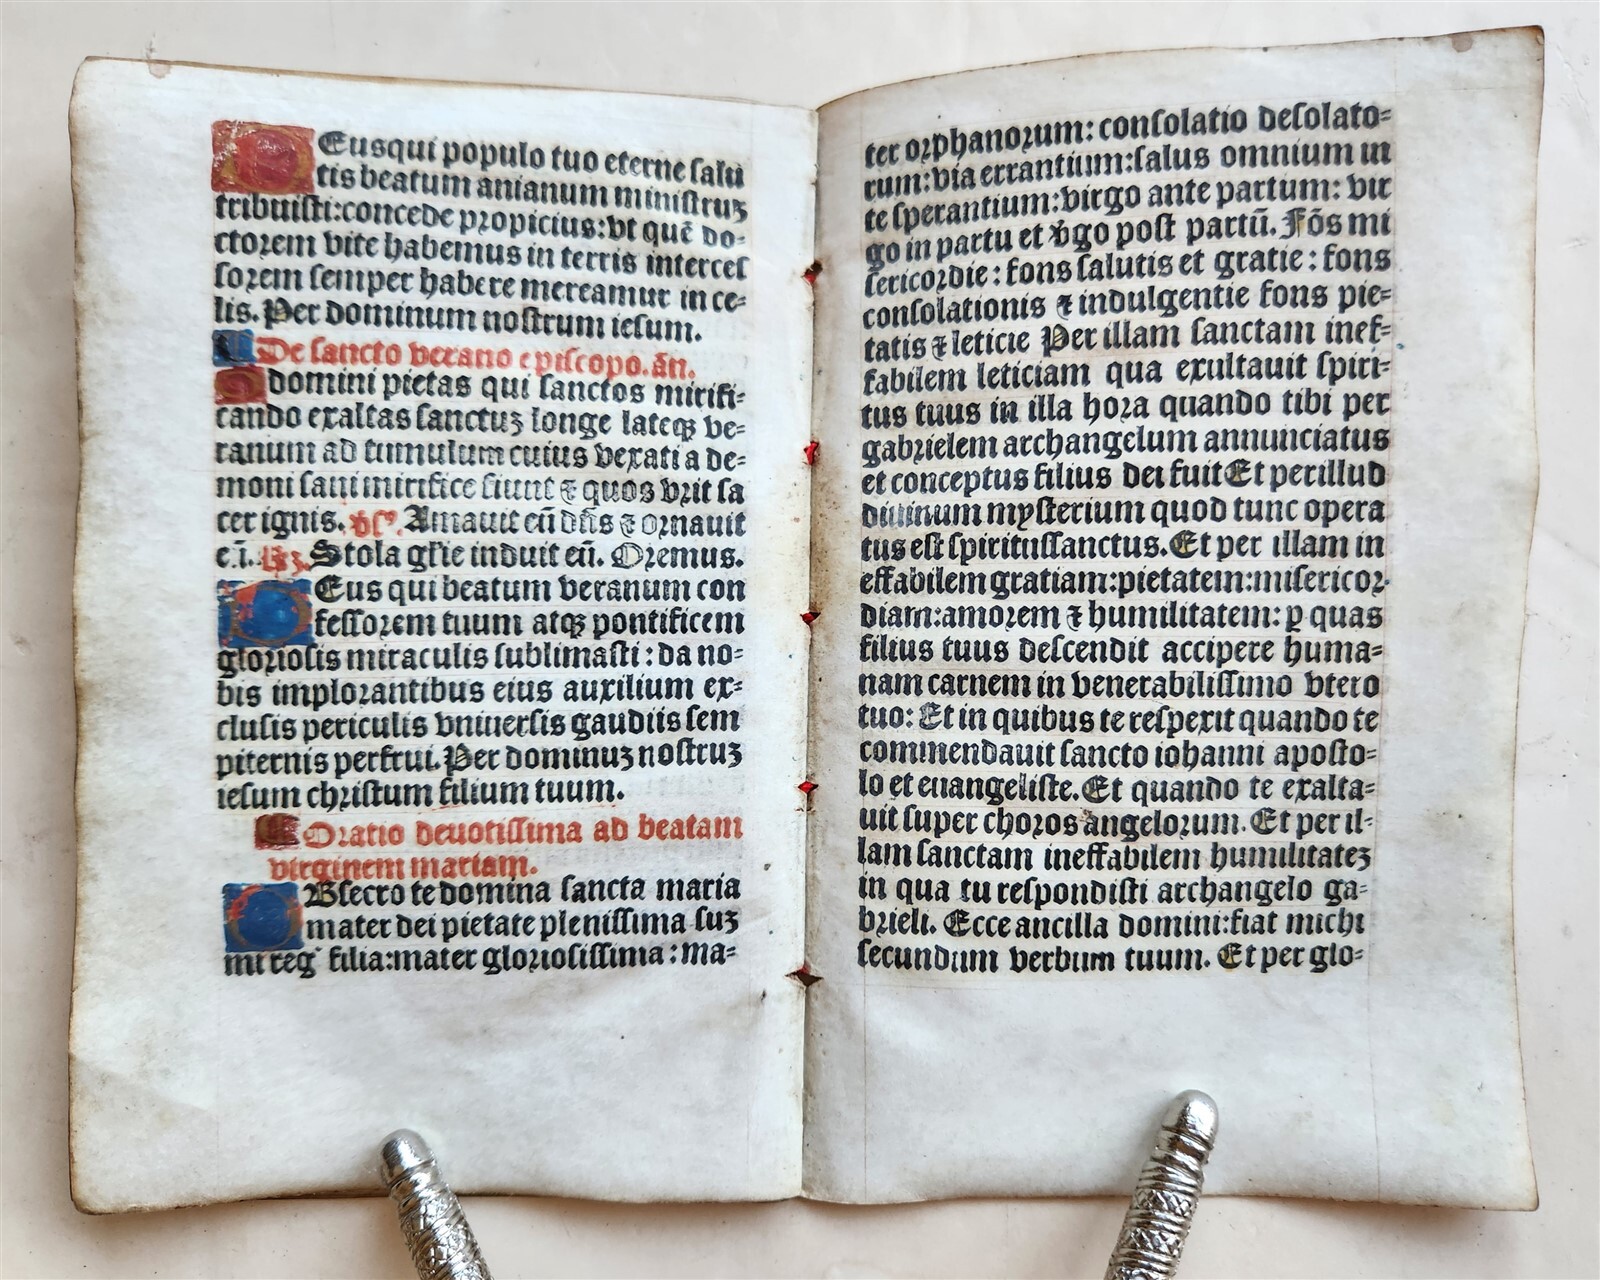 DEusqui populo tuo eterne salu
tis beatum anianum ministruꝫ
tribuisti:concede propicius:vt quē do-
ctorem vite habemus in terris interces
sorem semper habere mereamur in ce-
lis. Per dominum nostrum iesum.
De sancto verano episcopo. añ.
O domini pietas qui sanctos mirifi-
cando exaltas sanctuꝫ longe lateqꝫ ve-
ranum ad tumulum cuius vexati a de-
moni sani mirifice fiunt ⁊ quos vrit sa
cer ignis. v̄sꝰ. Amauit eū dn̄s ⁊ ornauit
eī. Stola gl̄rie induit eū. Oremus.
DEus qui beatum veranum con
fessorem tuum atqꝫ pontificem
gloriosis miraculis sublimasti: da no-
bis implorantibus eius auxilium ex-
clusis periculis vniuersis gaudiis sem
piternis perfrui. Per dominuꝫ nostruꝫ
iesum christum filium tuum.
Oratio deuotissima ad beatam
virginem mariam.
OBsecro te domina sancta maria
mater dei pietate plenissima suꝫ
mi regꝭ filia:mater gloriosissima: ma-
ter orphanorum: consolatio desolato-
rum:via errantium:salus omnium in
te sperantium:virgo ante partum: vir
go in partu et v̄go post partū. Fōs mi
sericordie: fons salutis et gratie: fons
consolationis ⁊ indulgentie fons pie-
tatis ⁊ leticie Per illam sanctam inef-
fabilem leticiam qua exultauit spiri-
tus tuus in illa hora quando tibi per
gabrielem archangelum annunciatus
et conceptus filius dei fuit Et per illud
diuinum mysterium quod tunc opera
tus est spiritussanctus. Et per illam in
effabilem gratiam:pietatem:misericor-
diam:amorem ⁊ humilitatem: ꝑ quas
filius tuus descendit accipere huma-
nam carnem in venerabilissimo vtero
tuo: Et in quibus te respexit quando te
commendauit sancto iohanni aposto-
lo et euangeliste. Et quando te exalta-
uit super choros angelorum. Et per il-
lam sanctam ineffabilem humilitateꝫ
in qua tu respondisti archangelo ga-
brieli. Ecce ancilla domini:fiat michi
secundum verbum tuum. Et per glo-